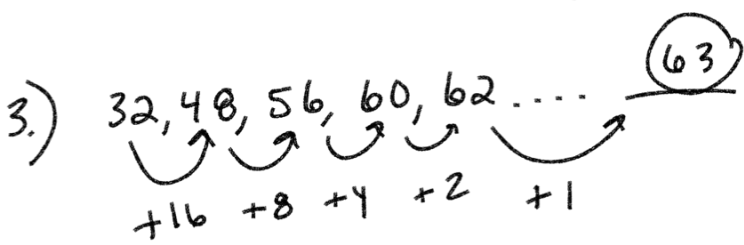 3.) 32, 48, 56, 60, 62 ..... 63
+16 +8 +4 +2 +1